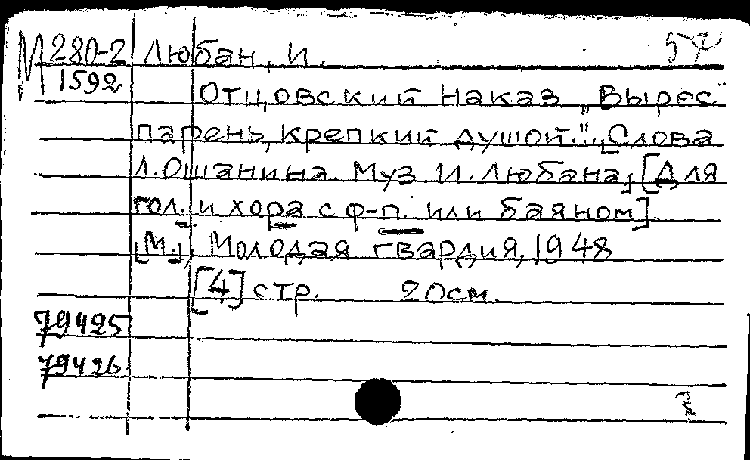 М 280-2 Любан, И. 54
1592
Отцовский наказ „Вырос
парень, крепкий душой." „Слова
Л. Ошанина. Муз И. Любана„ [Для
гол. и хора с ф-п. или баяном].
[М.], Молодая гвардия, 1948
[4] стр. 20см.
79425
79426